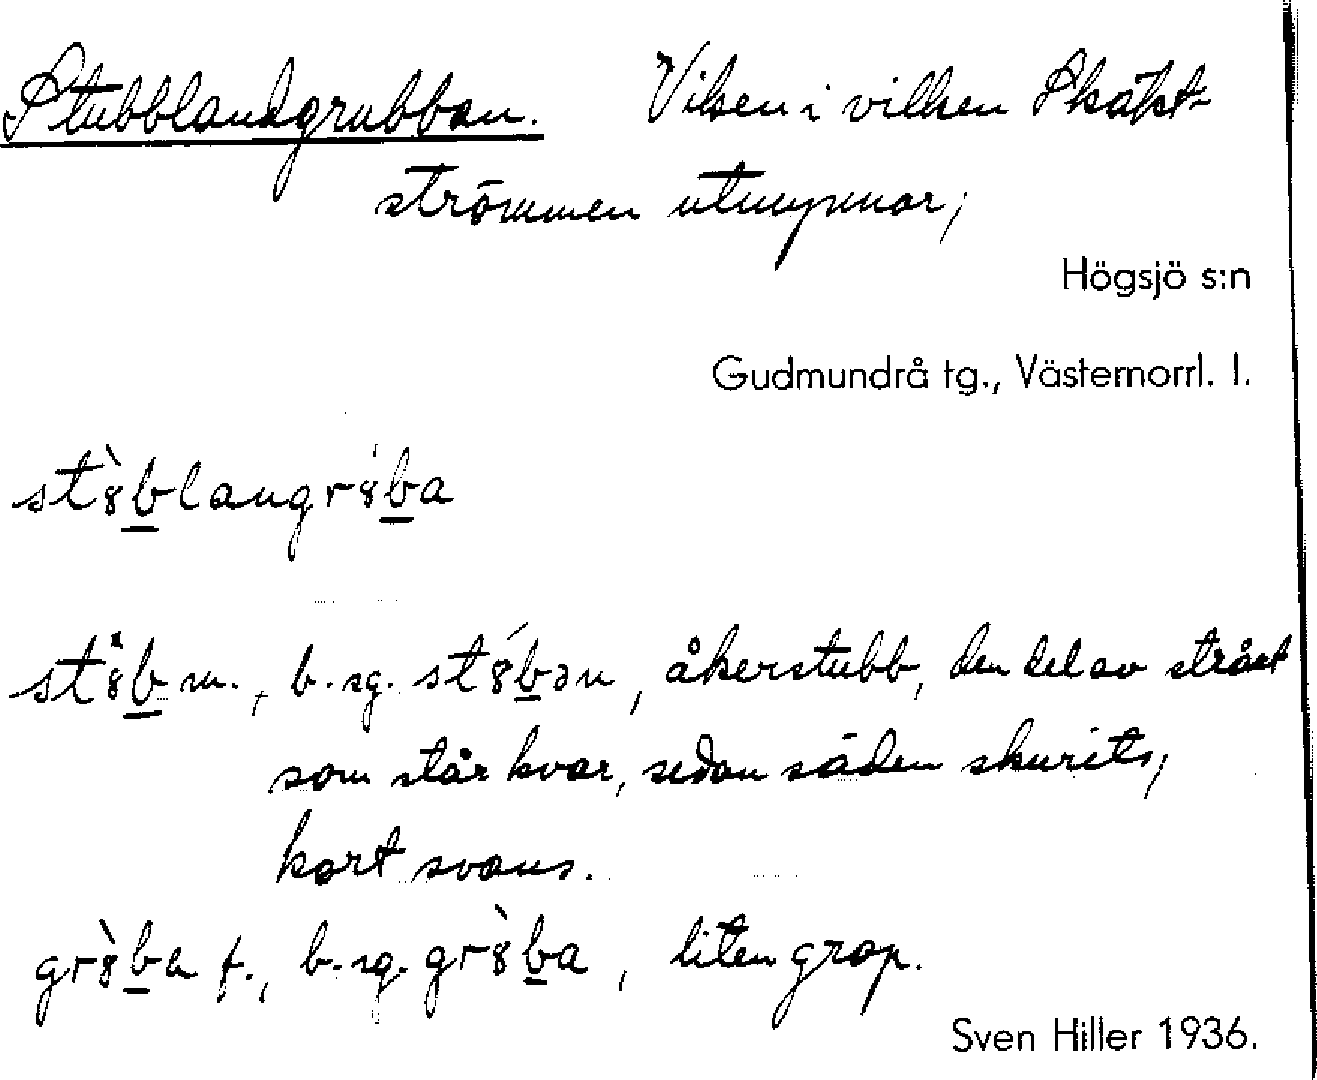 Stubblandgrubban. Viken i vilken Skäkt-
strömmen utmynnar;
Högsjö s:n
Gudmundrå tg., Västernorrl. l.
st8̀b̲langr8̀b̲a
st8̀b̲ m., b. sg. st8́b̲ən, åkerstubb, den del av strået
som står kvar, sedan säden skurits;
kort svans.
gr8̀b̲a f., b. sg. gr8̀b̲a, liten grop.
Sven Hiller 1936.